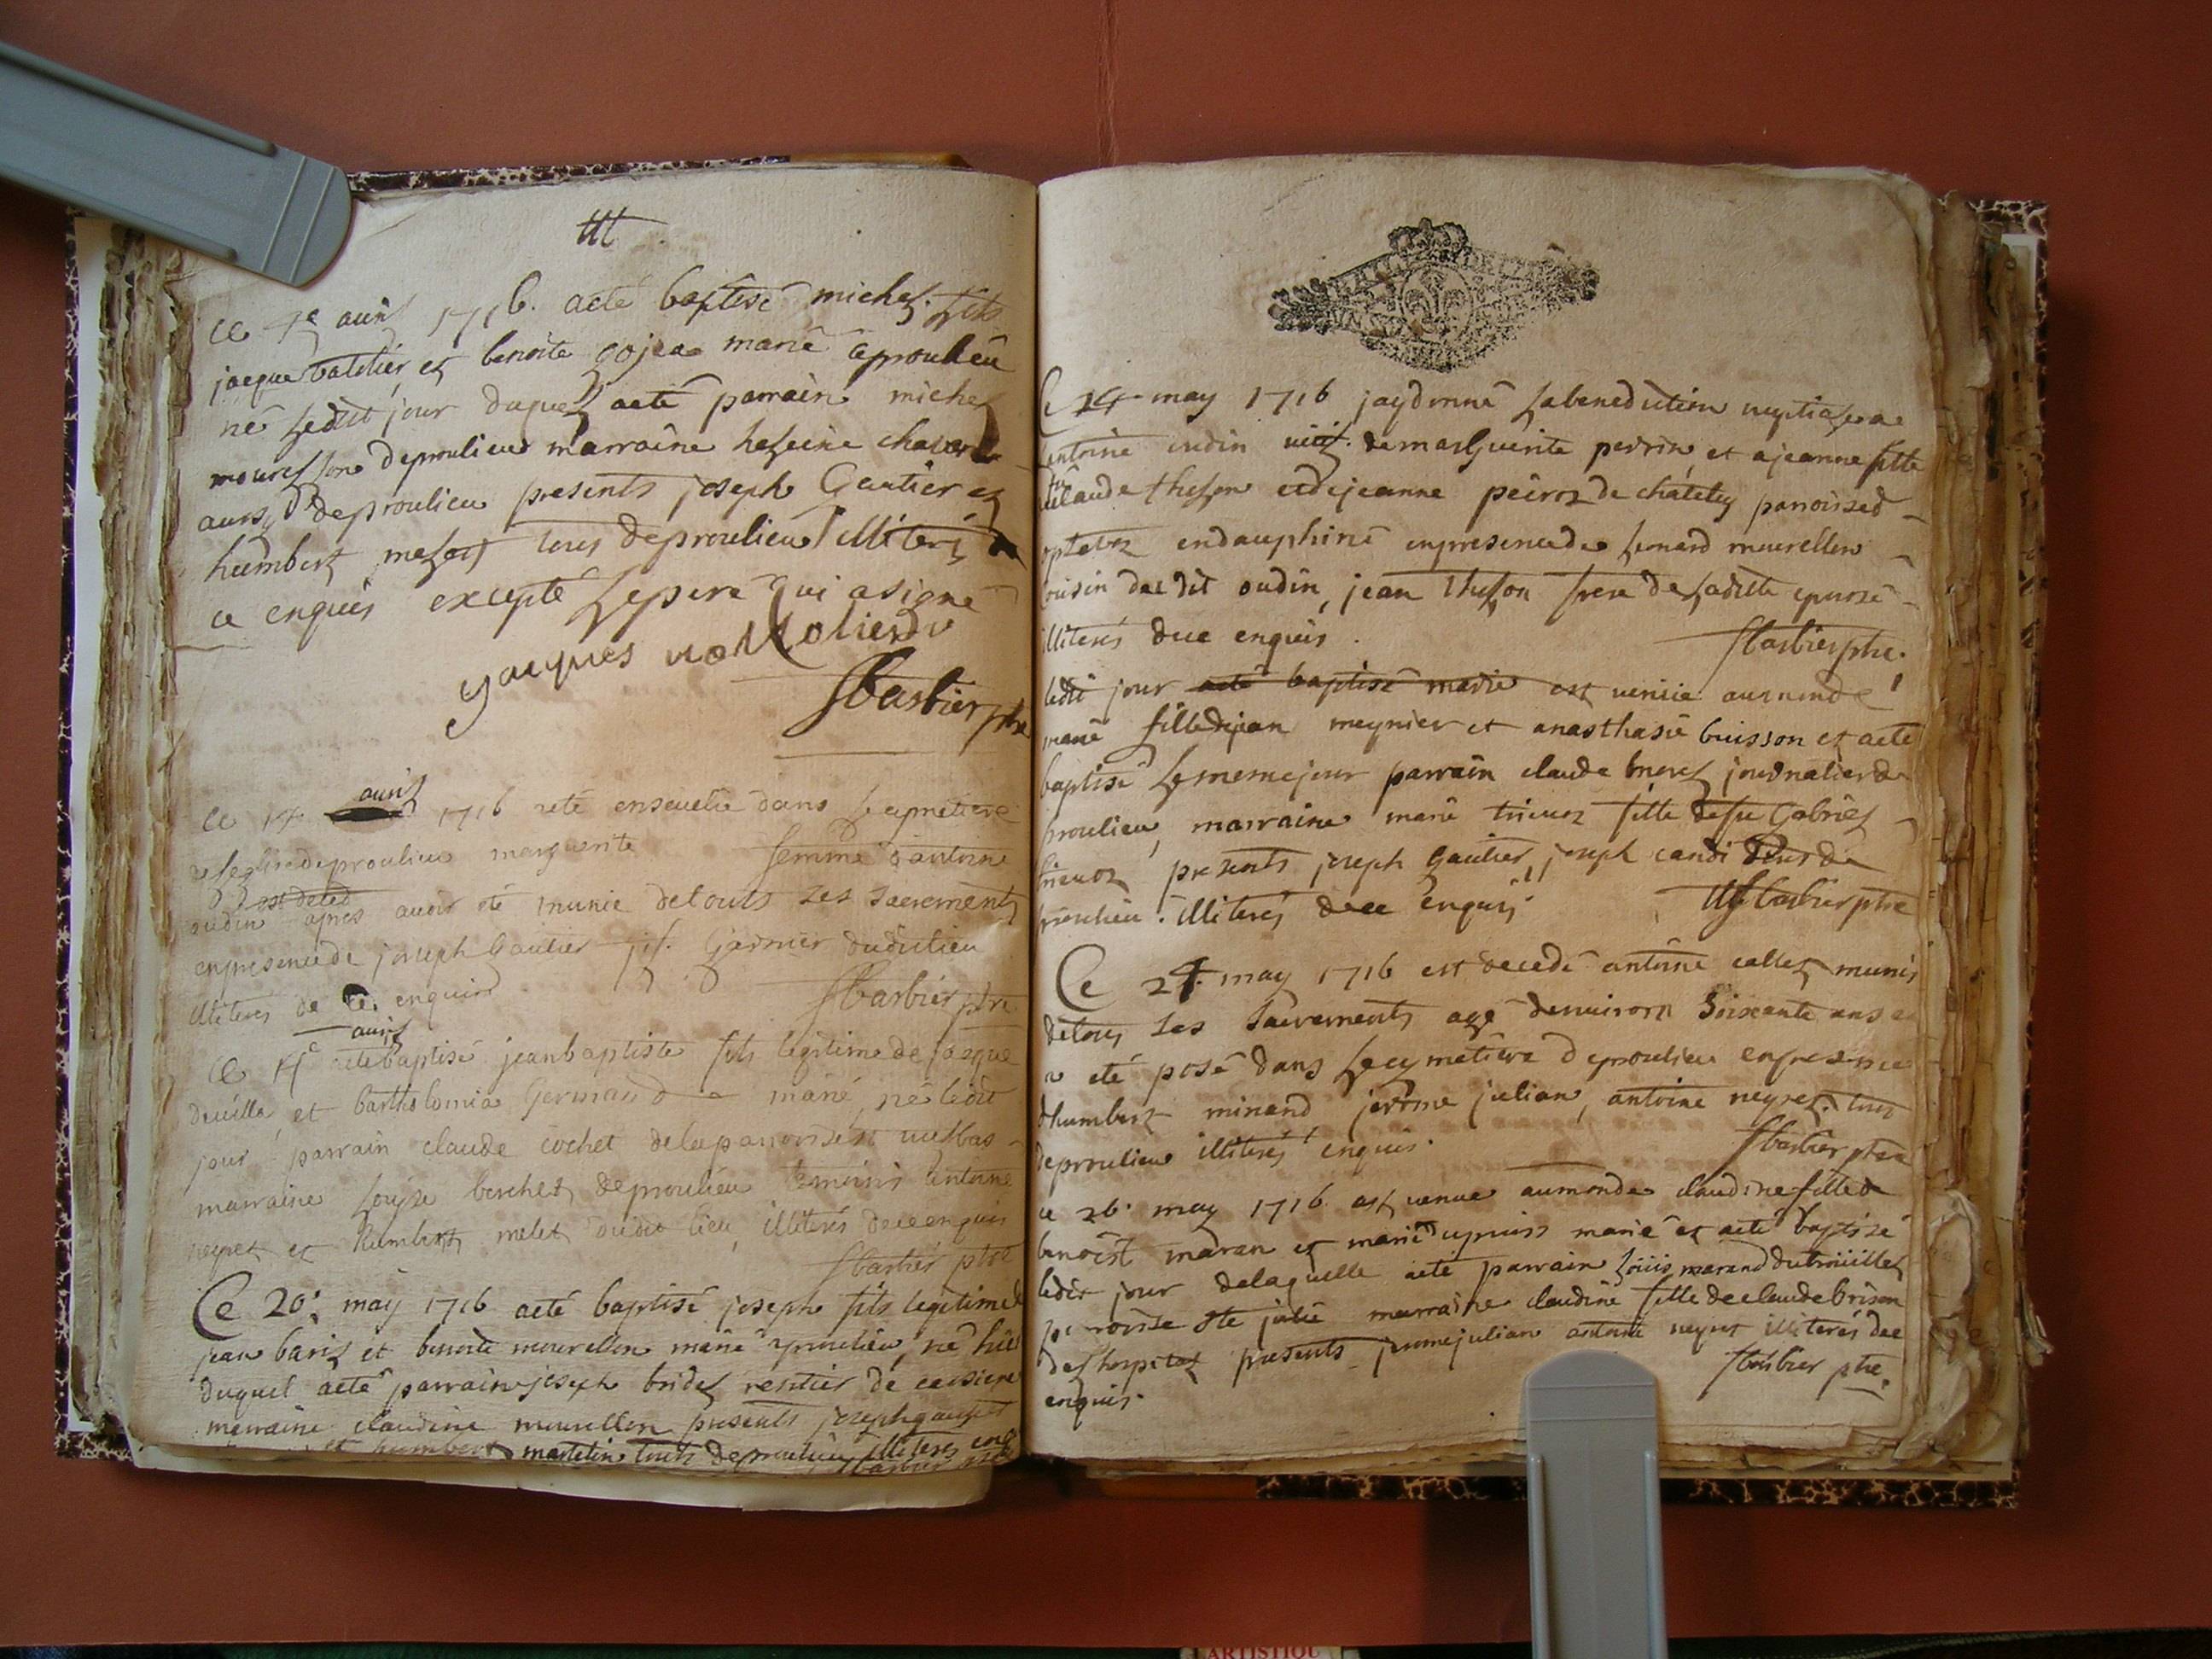 ce 4e auril 1716. aeté baptisé michel fils
jacque et benoite gojea marié a proulieu
né ledit jour duquel aeté parrain michel
mourellon de proulieu marraine heleine
aussy de proulieu presents joseph Gautier et
humbert tous de proulieu illiterés de
ce enquis excepté le pere qui a signé
jacques
f barbier ptre
ce 14 auril 1716 aeté enseuelie dans le cymetiere
de leglise de proulieu marguerite femme d'antoine
oudin apres auoir eté munie de touts ses sacrements
en presence de joseph Gautier garnier dudit lieu
illiteres de ce enquis
f barbier ptre
auril
ce aeté baptisé jean baptiste fils legitime de jacque
deuilla et bartholomia Germain marié, né ledit
jour parrain claude cochet de la parroisse st
marraine louise berchet de proulieu temoins antoine
neyret et humbert melet dudit lieu illiterés de ce enquis
f barbier ptre
Ce 20e may 1716 aeté baptisé joseph fils legitime de
jean bariz et benoite mourellon marié a proulieu, né
duquel aeté parrain joseph bridel rentier de
marraine claudine mourellon presents joseph gautier
et humbert martelin touts de proulieu illiteres enquis
f barbier ptre
Ce 14 may 1716 jay donné la benediction nuptiale a
antoine oudin de marguerite perrin, et a jeanne fille
claude theson et de jeanne peiroz de parroisse d
optevoz en dauphiné en presence de leonard mourellon
cousin dudit oudin, jean theson frere de ladite epouse
illiterés de ce enquis.
f barbier ptre.
ledit jour aeté baptisé marie est venüe au monde
marie fille de jean meynier et anasthasie buisson et aeté
baptisé le meme jour parrain claude journalier de
proulieu, marraine marie trieuoz fille de fu Gabriel
trieuoz presents joseph Gautier, joseph candi tous de
proulieu. illiterés de ce enquis.
f barbier ptre
Ce 24. may 1716 est decedé antoine callet munis
de tous ses sacrements agé denuiron soixante ans et
a eté posé dans le cymetiere de proulieu en presence
d'humbert minand jerome julian, antoine neyret. tous
de proulieu illiterés enquis.
f barbier ptre
ce 26. may 1716 est venue au monde claudine fille de
benoist maran et marie dupuis marié et aeté baptisé
ledit jour de laquelle aeté parrain louis marand
parroisse Ste julie marraine claudine fille de claude brison
de lhospital presents jerome julian antoine neyret illiterés de ce
enquis.
f barbier ptre.
ARTISTIQU